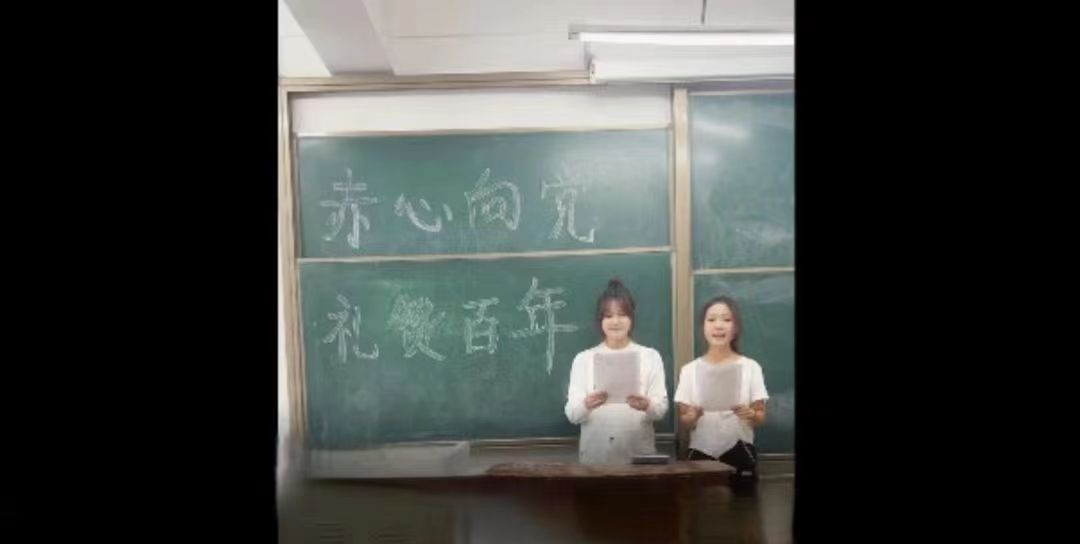 赤心向党
礼赞百年